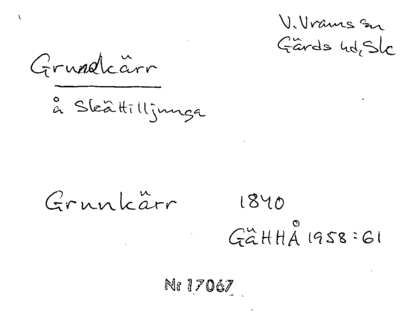 V. Vrams sn
Gärds hd, Skc
Grundkärr
å Skättilljunga
Grunnkärr 1840
GäHHÅ 1958:61
Nr 17067